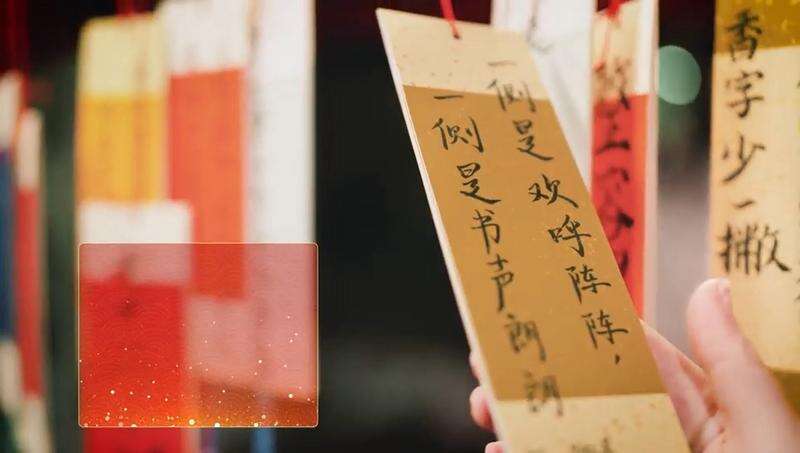 香字少一撇
一侧是欢呼阵阵，
一侧是书声朗朗